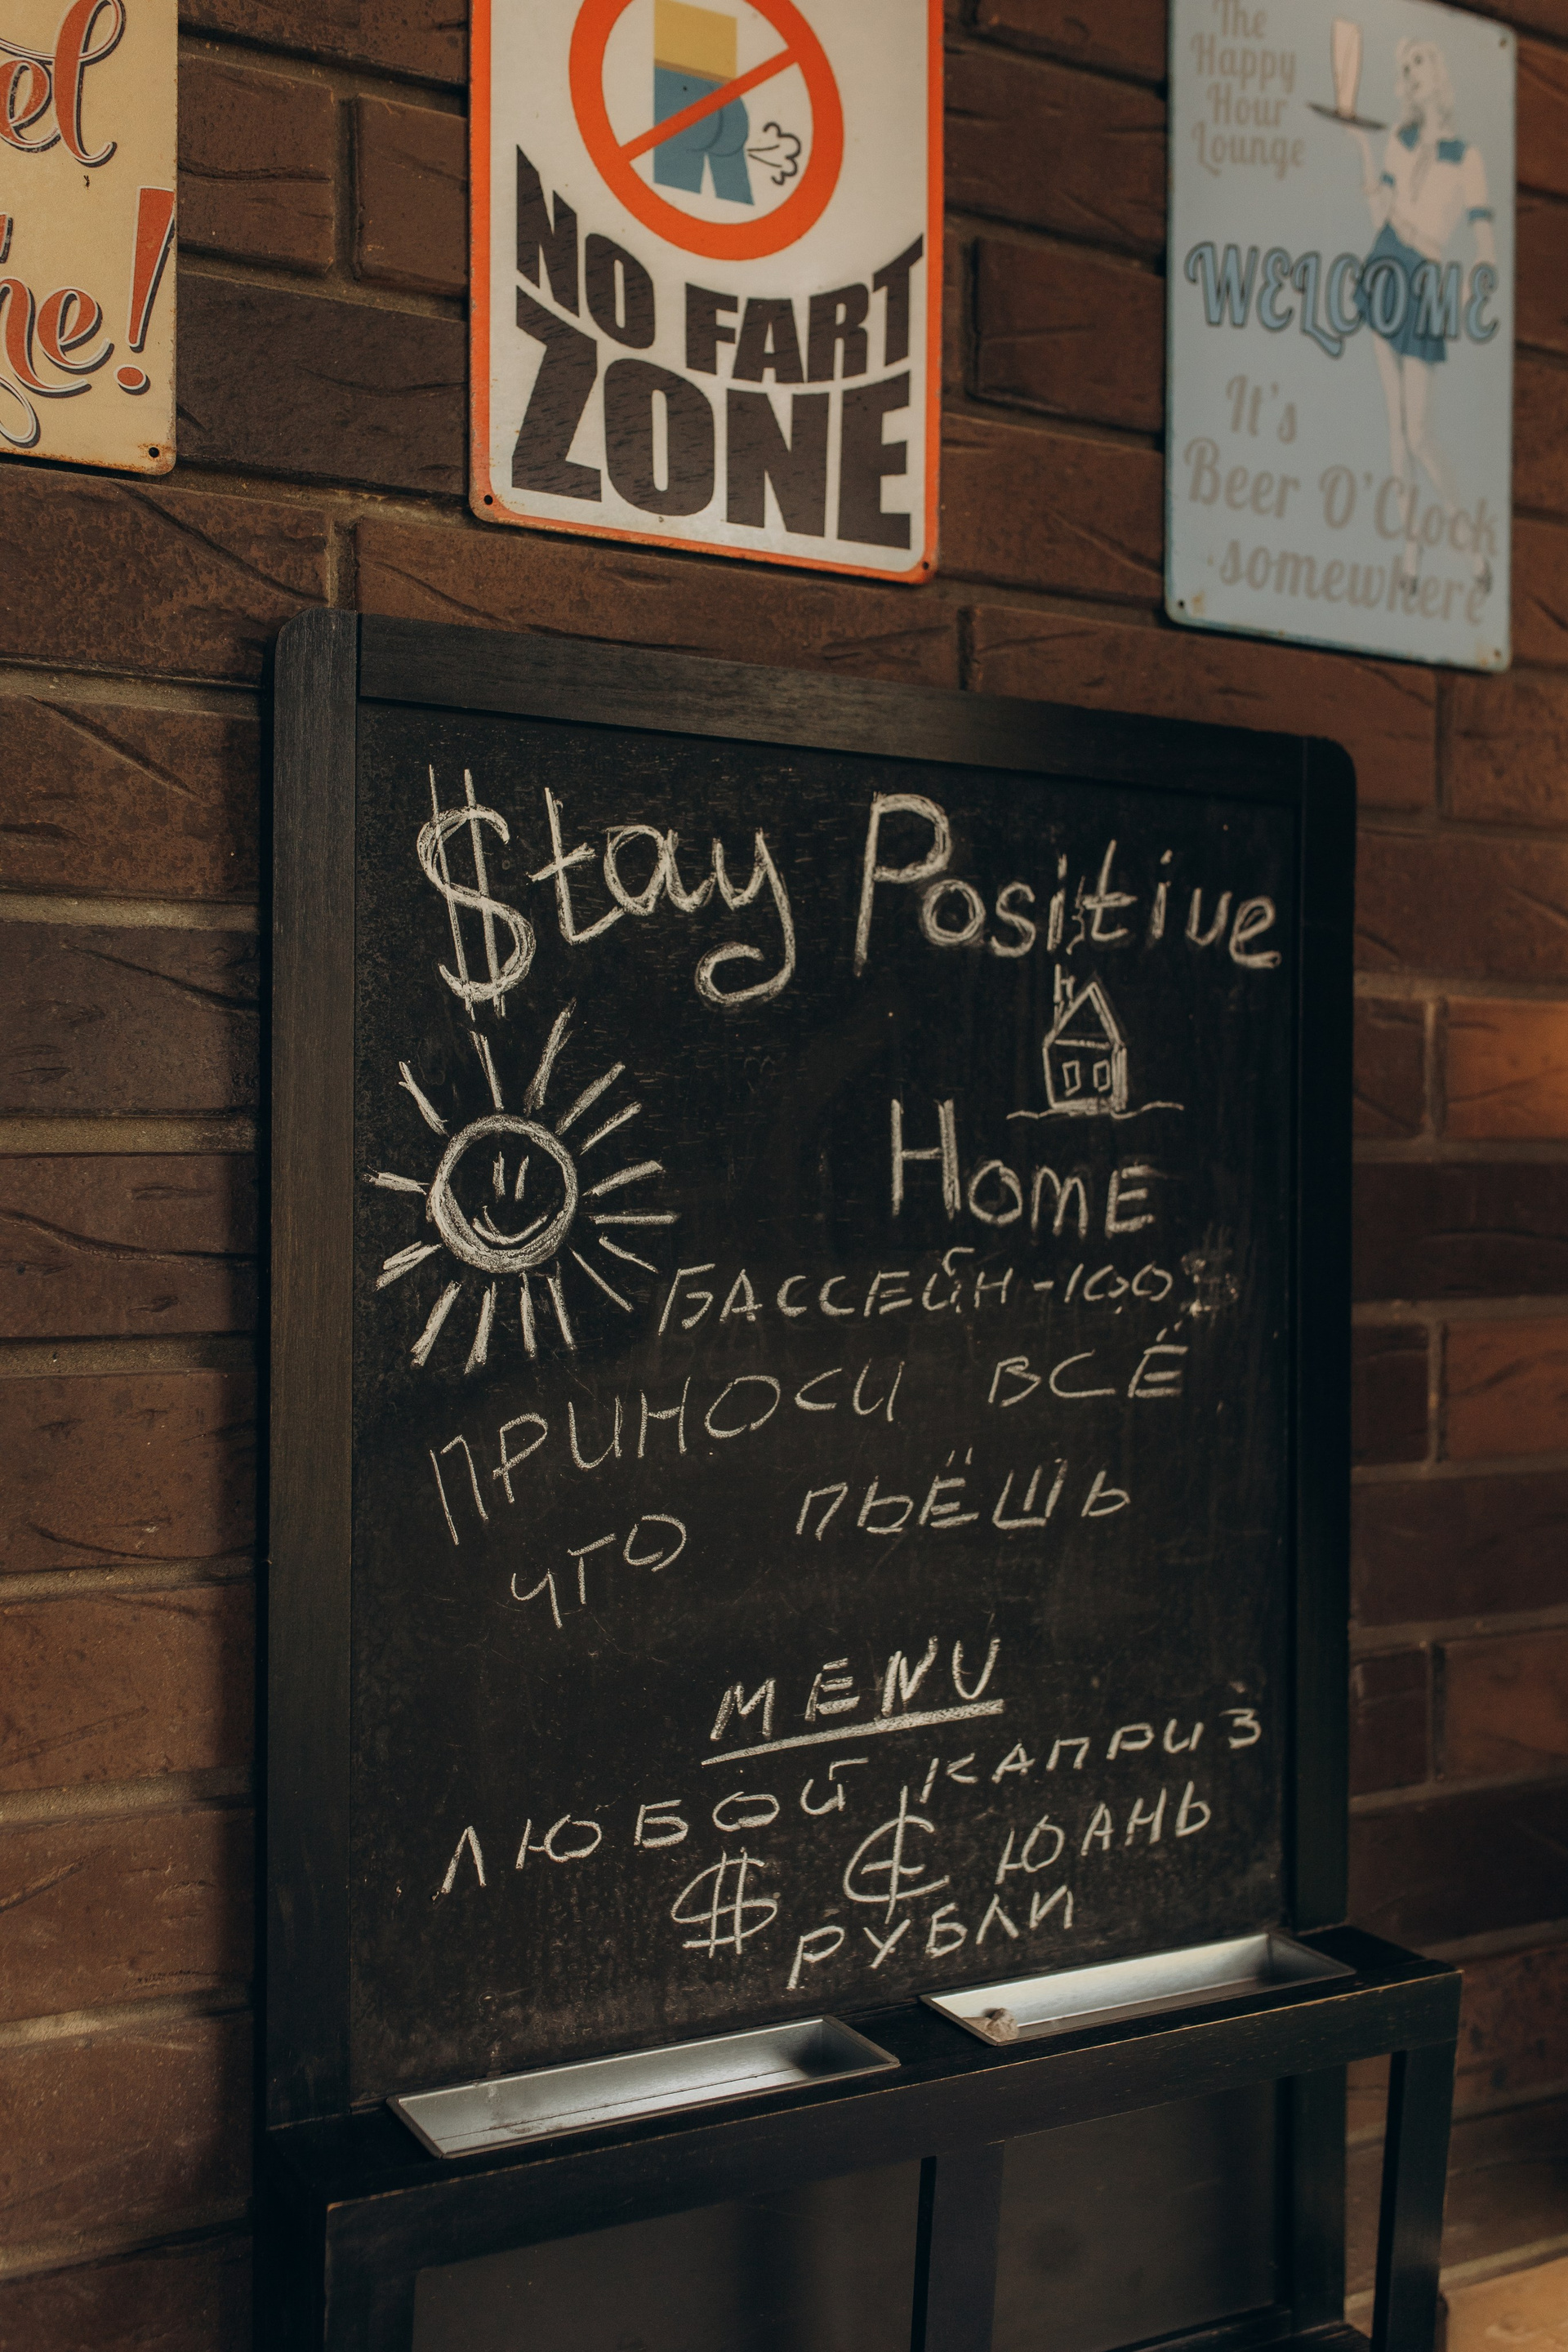 el
ne!
NO FART
ZONE
The
Happy
Hour
Lounge
WELCOME
It's
Beer O'Clock
somewhere
$tay Positive
HOME
БАССЕЙН-100$
ПРИНОСИ ВСЁ
ЧТО ПЬЁШЬ
MENU
ЛЮБОЙ КАПРИЗ
$ € ЮАНЬ
РУБЛИ